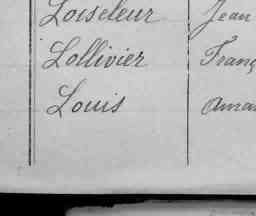 Loiseleur Jean
Lollivier Franç
Louis Amau